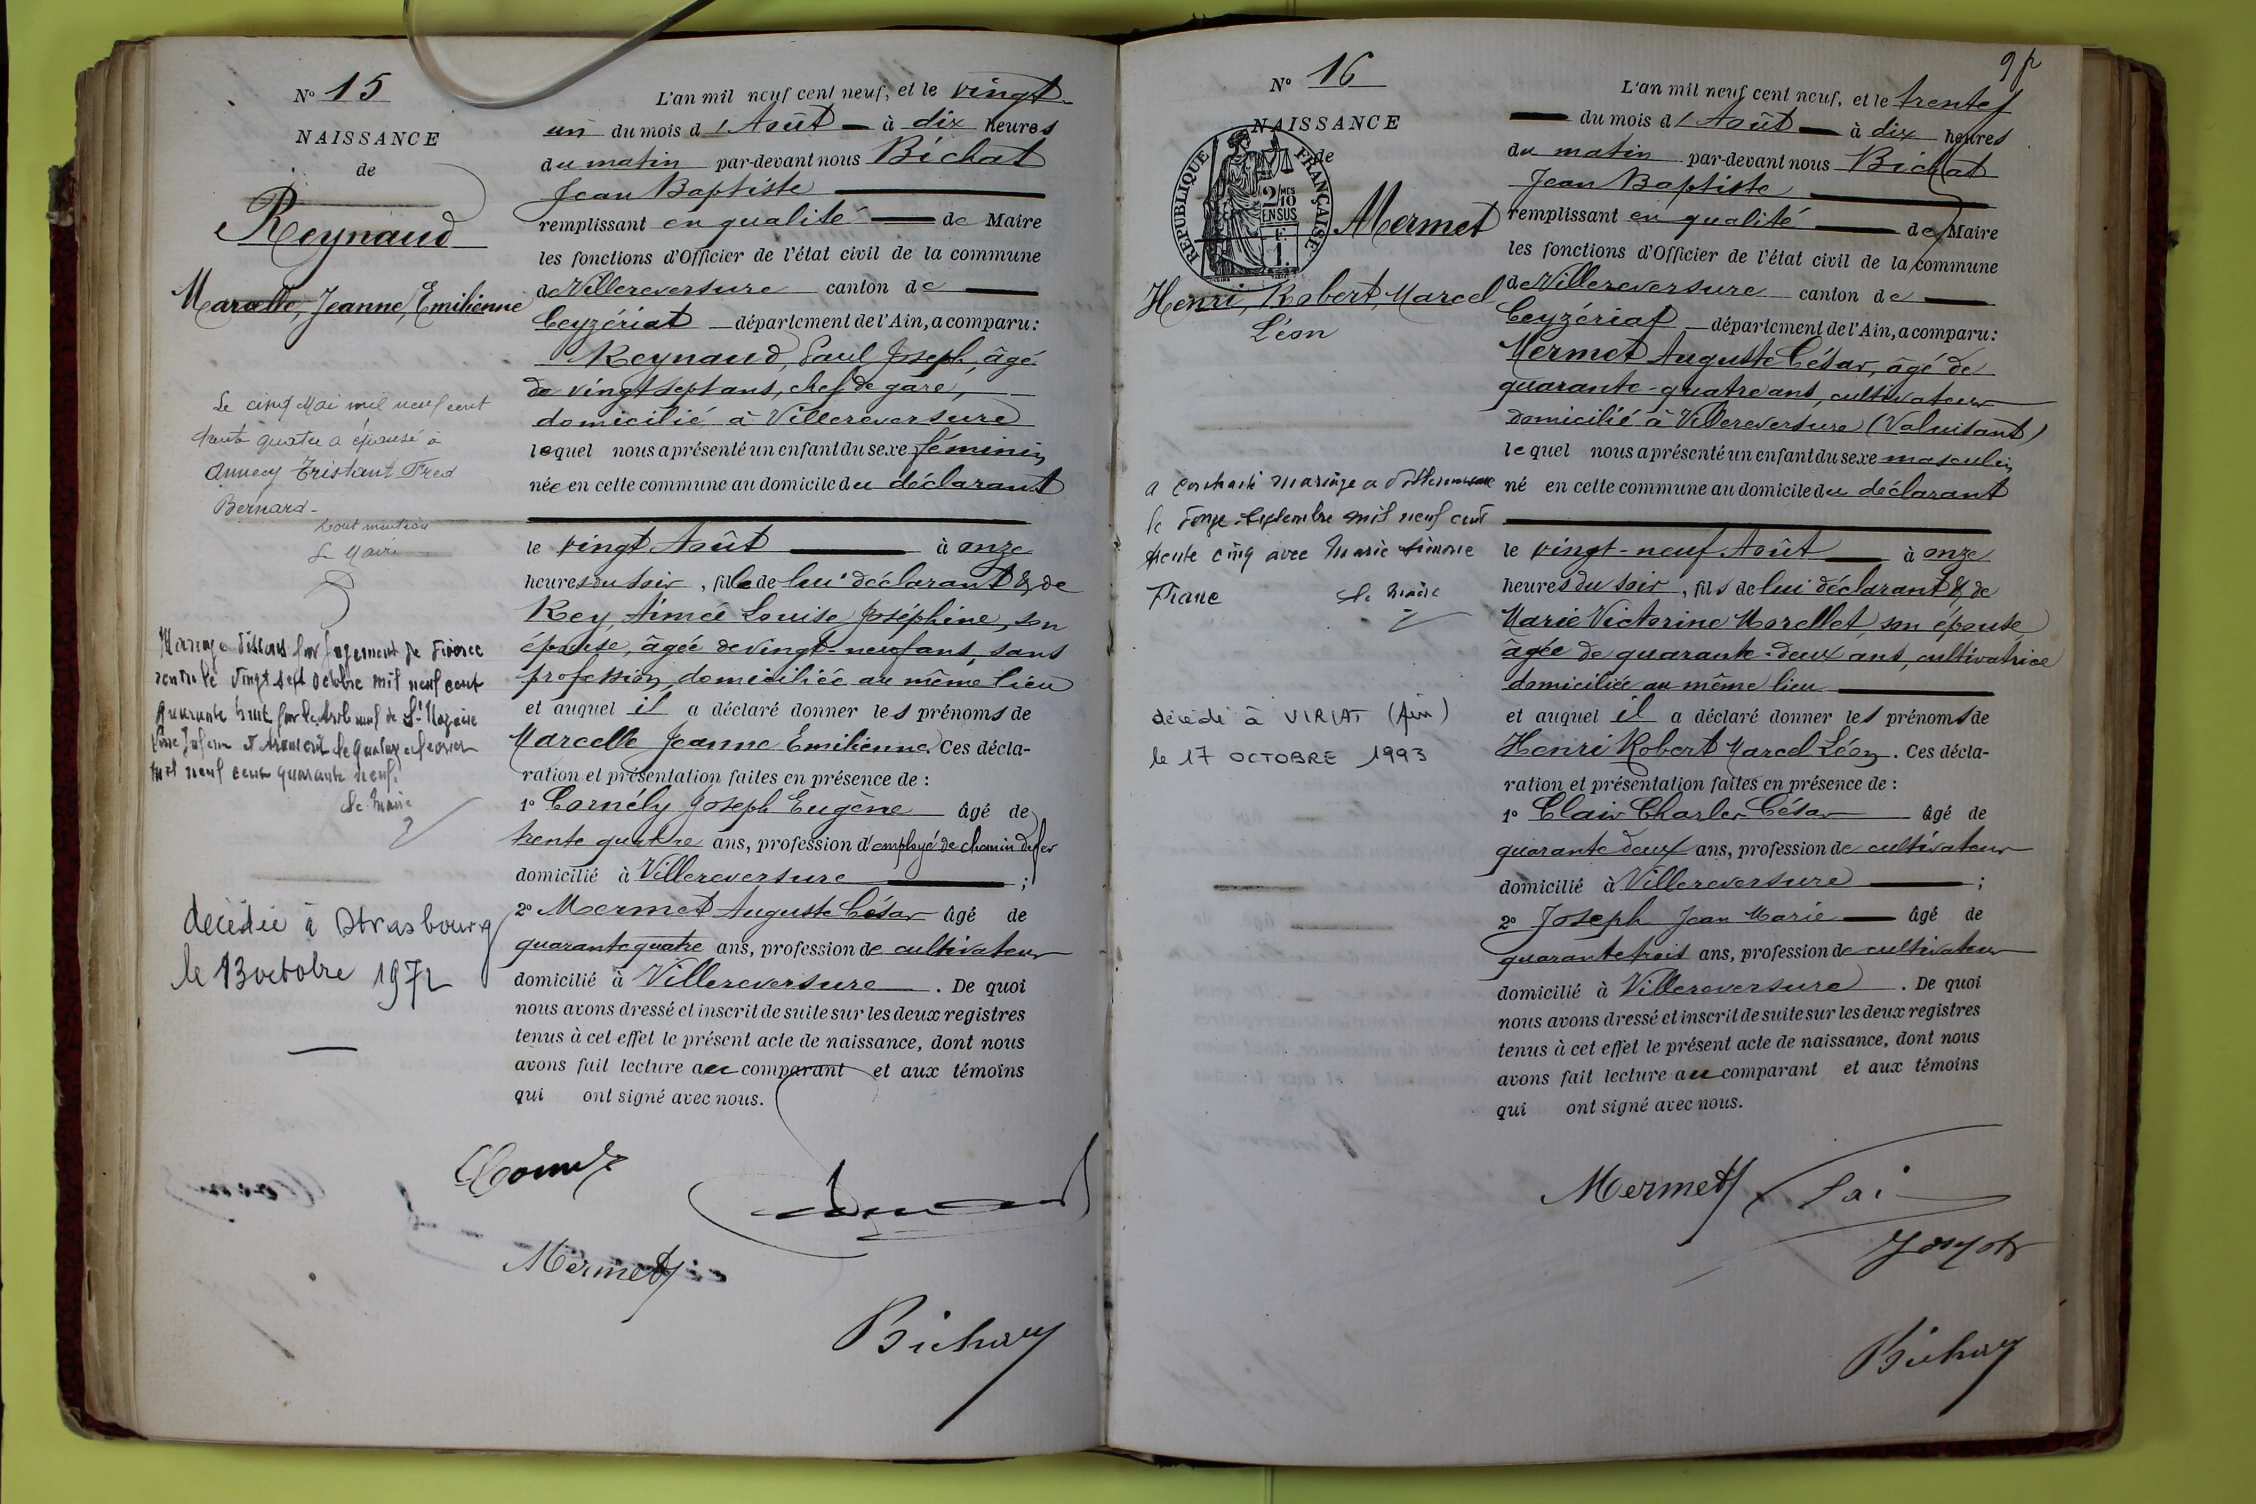 N° 15
NAISSANCE
de
Reynaud
Marcelle, Jeanne, Emilienne
Le cinq Mai mil neuf cent
trente quatre a épousé à
Annecy Tristant Fred
Bernard.
Le Maire
Mariage dissous par jugement de divorce
rendu le vingt sept octobre mil neuf cent
quarante huit par le tribunal de St Nazaire
le quatorze février
mil neuf cent quarante neuf.
Le Maire
décédée à Strasbourg
le 13 octobre 1972
L'an mil neuf cent neuf, et le vingt-
un du mois d'Août à dix heures
du matin par-devant nous Bichat
Jean Baptiste
remplissant en qualité de Maire
les fonctions d'Officier de l'état civil de la commune
de Villereversure canton de
Ceyzériat département de l'Ain, a comparu :
Reynaud, Paul Joseph, âgé
de vingt sept ans, chef de gare,
domicilié à Villereversure
lequel nous a présenté un enfant du sexe féminin
née en cette commune au domicile du déclarant
le vingt Août à onze
heures du soir, fille de lui déclarant & de
Rey, Aimée Louise Joséphine, son
épouse, âgée de vingt-neuf ans, sans
profession, domiciliée au même lieu
et auquel il a déclaré donner les prénoms de
Marcelle Jeanne Emilienne. Ces décla-
ration et présentation faites en présence de :
1° Cornély Joseph Eugène âgé de
trente quatre ans, profession d'employé de chemin de fer
domicilié à Villereversure ;
2° Mermet Auguste César âgé de
quarante quatre ans, profession de cultivateur
domicilié à Villereversure. De quoi
nous avons dressé et inscrit de suite sur les deux registres
tenus à cet effet le présent acte de naissance, dont nous
avons fait lecture au comparant et aux témoins
qui ont signé avec nous.
Mermet
Bichat
9 f
N° 16
NAISSANCE
de
REPUBLIQUE FRANÇAISE
2/10 MES
EN SUS
F.
1.
Mermet
Henri, Robert, Marcel
Léon
a contracté mariage à Villereversure
le onze septembre mil neuf cent
trente cinq avec Marie Simone
Le Maire
décédé à VIRIAT (Ain)
le 17 OCTOBRE 1993
L'an mil neuf cent neuf, et le trente
du mois d'Août à dix heures
du matin par-devant nous Bichat
Jean Baptiste
remplissant en qualité de Maire
les fonctions d'Officier de l'état civil de la commune
de Villereversure canton de
Ceyzériat département de l'Ain, a comparu :
Mermet Auguste César, âgé de
quarante-quatre ans, cultivateur
domicilié à Villereversure (Valuisant)
lequel nous a présenté un enfant du sexe masculin
né en cette commune au domicile du déclarant
le vingt-neuf Août à onze
heures du soir, fils de lui déclarant & de
Marie Victorine Morellet, son épouse
âgée de quarante-deux ans, cultivatrice
domiciliée au même lieu
et auquel il a déclaré donner les prénoms de
Henri Robert Marcel Léon. Ces décla-
ration et présentation faites en présence de :
1° Clair Charles César âgé de
quarante deux ans, profession de cultivateur
domicilié à Villereversure ;
2° Joseph Jean Marie âgé de
quarante trois ans, profession de cultivateur
domicilié à Villereversure. De quoi
nous avons dressé et inscrit de suite sur les deux registres
tenus à cet effet le présent acte de naissance, dont nous
avons fait lecture au comparant et aux témoins
qui ont signé avec nous.
Mermet
Joseph
Bichat